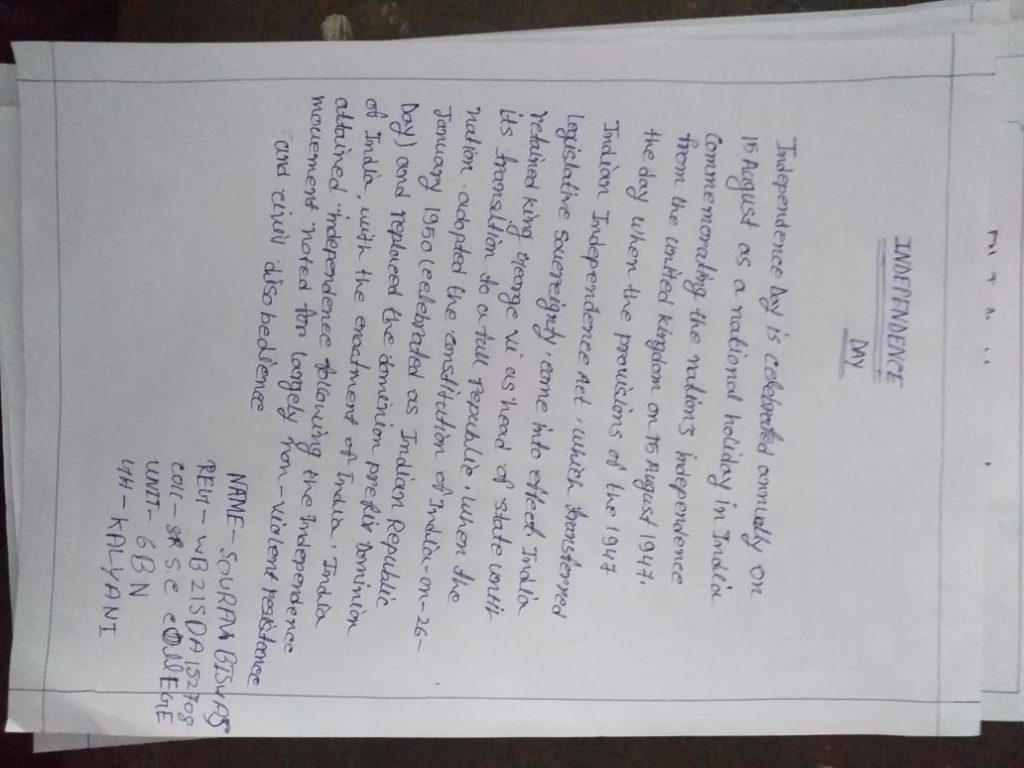 INDEPENDENCE
DAY
Independence Day is celebrated annually on
15 August as a national holiday in India
commemorating the nation's independence
from the united kingdom on 15 August 1947.
the day when the provisions of the 1947
Indian Independence Act, which transferred
legislative sovereignty, come into effect. India
retained king George vi as head of state until
its transition to a full republic, when the
nation adopted the constitution of India-on-26-
January 1950 (celebrated as Indian Republic
Day) and replaced the dominion prefix Dominion
of India, with the enactment of India, India
attained independence following the independence
movement noted for largely non-violent resistance
and civil disobedience
NAME- SOURAN BISWAS
REG- WB21SDA152708
COLL- SR SE COLLEGE
UNIT- 6BN
GH- KALYANI